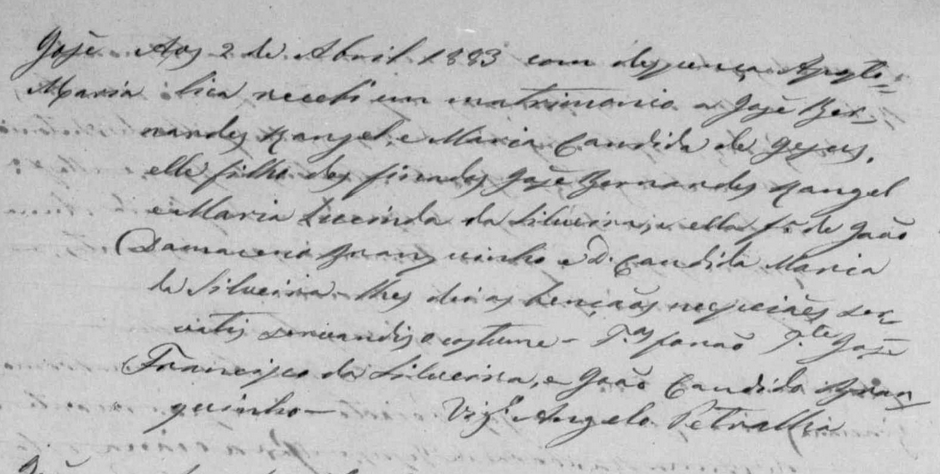 José Aos 2 de Abril 1883 com despença Aposto-
Maria lica recebi em matrimonio a José Ber-
nardes Rangel, e Maria Candida de Jesus,
elle filho dos finados José Bernardes Rangel
e Maria Lucinda da Silveira, e ella fª de João
Damaceno Junquinho e D. Candida Maria
da Silveira - lhes dei as bençãos nupciães ser-
vatis servandis o costume - T.as forão T.te José
Francisco da Silveira, e João Candido
quinho - Vigº Angelo Petraglia